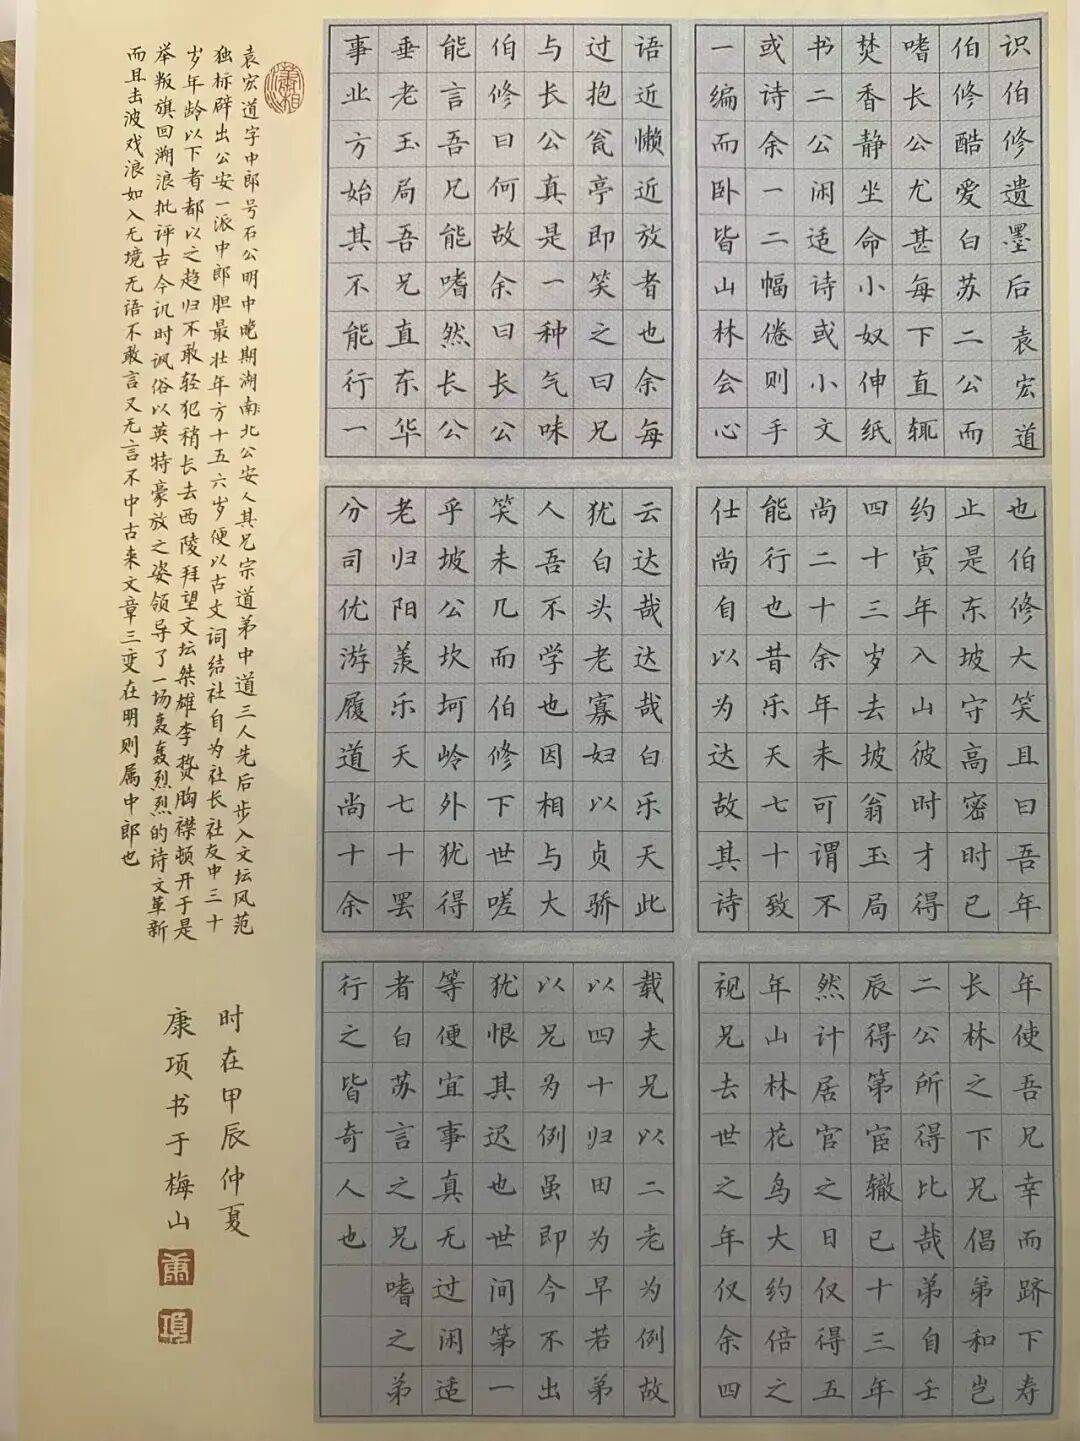 识伯修遗墨后袁宏道
伯修酷爱白苏二公而
嗜长公尤甚每下直辄
焚香静坐命小奴伸纸
书二公闲适诗或小文
或诗余一二幅倦则手
一编而卧皆山林会心
语近懒近放者也余每
过抱瓮亭即笑之曰兄
与长公真是一种气味
伯修曰何故余曰长公
能言吾兄能嗜然长公
垂老玉局吾兄直东华
事业方始其不能行一
也伯修大笑且曰吾年
止是东坡守高密时已
约寅年入山彼时才得
四十三岁去坡翁玉局
尚二十余年未可谓不
能行也昔乐天七十致
仕尚自以为达故其诗
云达哉达哉白乐天此
犹白头老寡妇以贞骄
人吾不学也因相与大
笑未几而伯修下世嗟
乎坡公坎坷岭外犹得
老归阳羡乐天七十罢
分司优游履道尚十余
年使吾兄幸而跻下寿
长林之下兄倡弟和岂
二公所得比哉弟自壬
辰得第宦辙已十三年
然计居官之日仅得五
年山林花鸟大约倍之
视兄去世之年仅余四
载夫兄以二老为例故
以四十归田为早若弟
以兄为例虽即今不出
犹恨其迟也世间第一
等便宜事真无过闲适
者白苏言之兄嗜之弟
行之皆奇人也
潇湘
袁宏道字中郎号石公明中晚期湖南北公安人其兄宗道弟中道三人先后步入文坛风范
独标辟出公安一派中郎胆最壮年方十五六岁便以古文词结社自为社长社友中三十
岁年龄以下者都以之趋归不敢轻犯稍长去西陵拜望文坛桀雄李贽胸襟顿开于是
举叛旗回溯浪批评古今讥时讽俗以英特豪放之姿领导了一场轰轰烈烈的诗文革新
而且击波戏浪如入无境无语不敢言又无言不中古来文章三变在明则属中郎也
时在甲辰仲夏
康项书于梅山
康
項